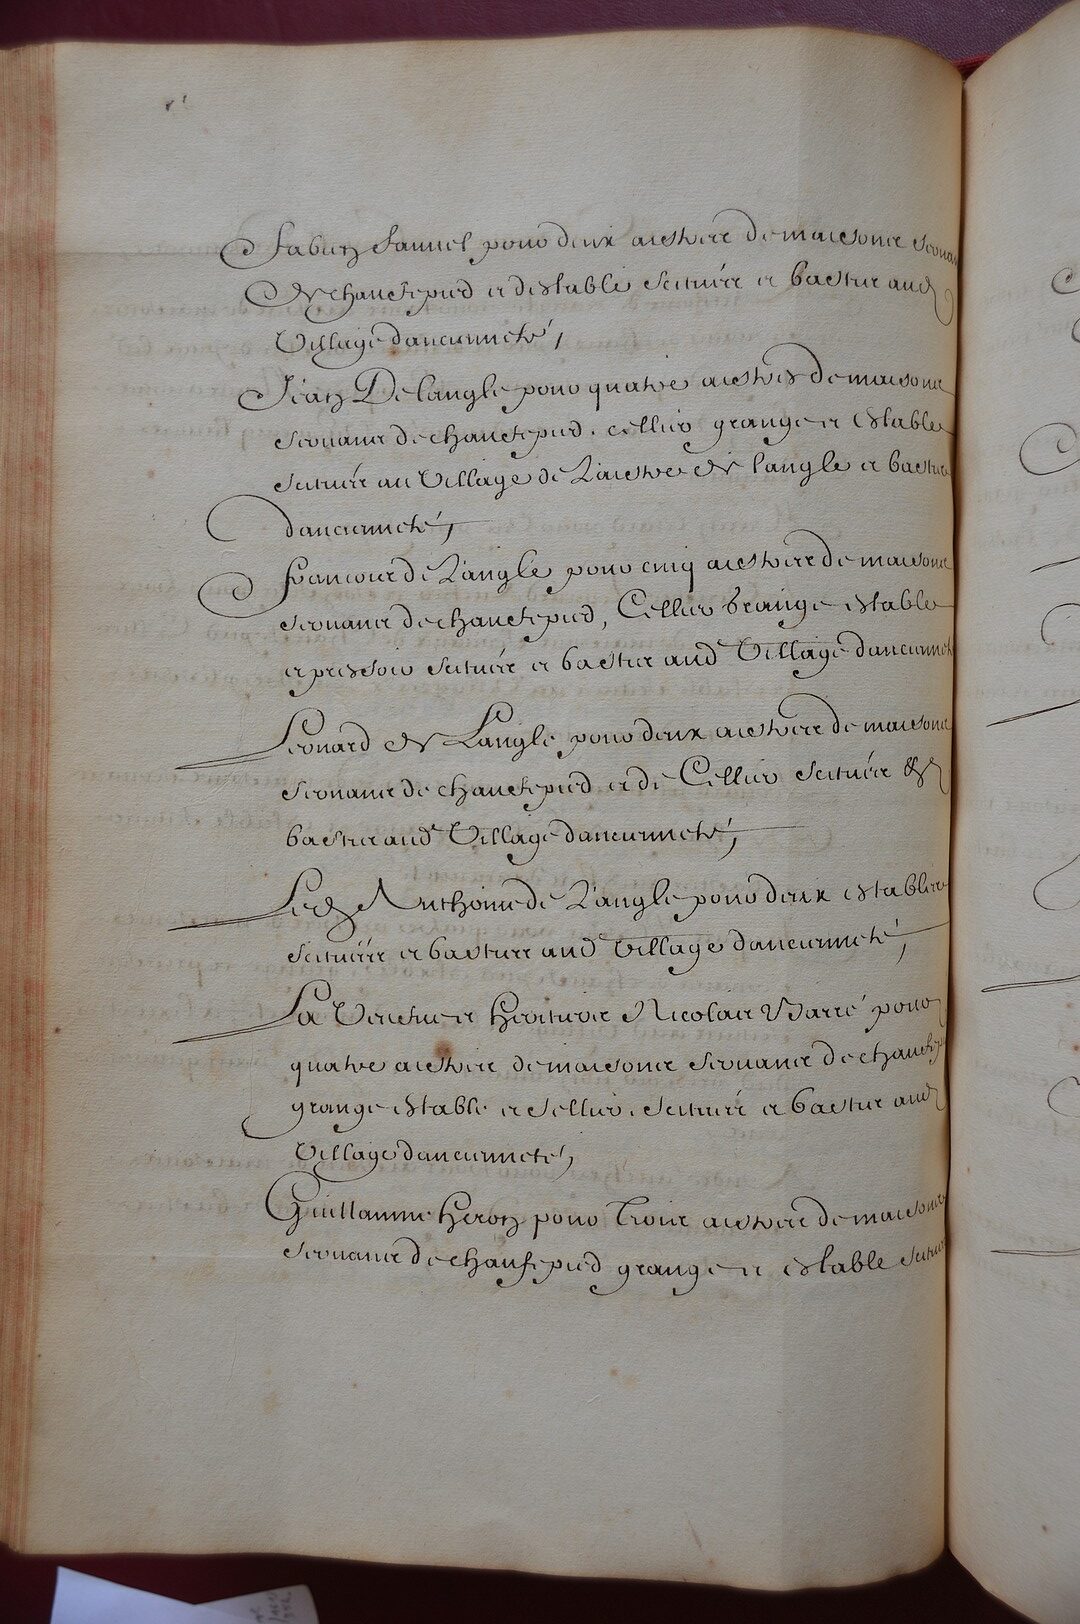 Fabien Samuel pour deux aistres de maisons servan
de chaufepied et destable scituées et basties aud
Village dancienneté,
Jean Delangle pour quatre aistres de maisons
servans de chaufepied, cellier grange et estable
scituées au Village de Laistre de langle et basties
danciennete,
Francois de Langle pour cinq aistres de maisons
servans de chaufepied, Cellier Grange estable
et pressoir scituées et basties aud Village danciennete
Leonard de Langle pour deux aistres de maisons
servans de chaufepied et de Cellier scituées &
basties aud Village danciennete,
Led Anthoine de Langle pour deux estables
scituées et basties aud Village danciennete,
La Veufue et heritiers Nicolas Barré pour
quatre aistres de maisons servans de chaufep
grange estable et sellier, scituées et basties aud
Village danciennete,
Guillaume heron pour Trois aistres de maisons
servans de chaufepied grange et estable scituée